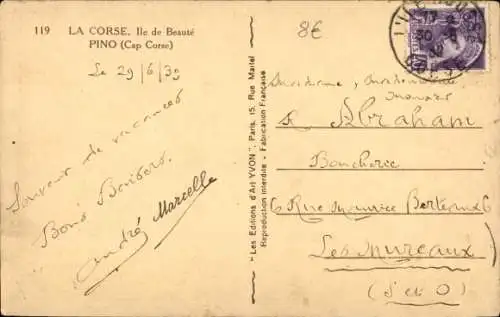 119 LA CORSE. Ile de Beauté
PINO (Cap Corse)
8€
Le 29/6/39
Souvenir de vacances
Bons Baisers.
André Marcelle
"Les Editions d'Art YVON", Paris, 15, Rue Martel
Reproduction interdite - Fabrication Française
Madame, Mademoiselle
Abraham
Boucherie
6 Rue Maurice Berteaux 6
Les Mureaux
(S et O)